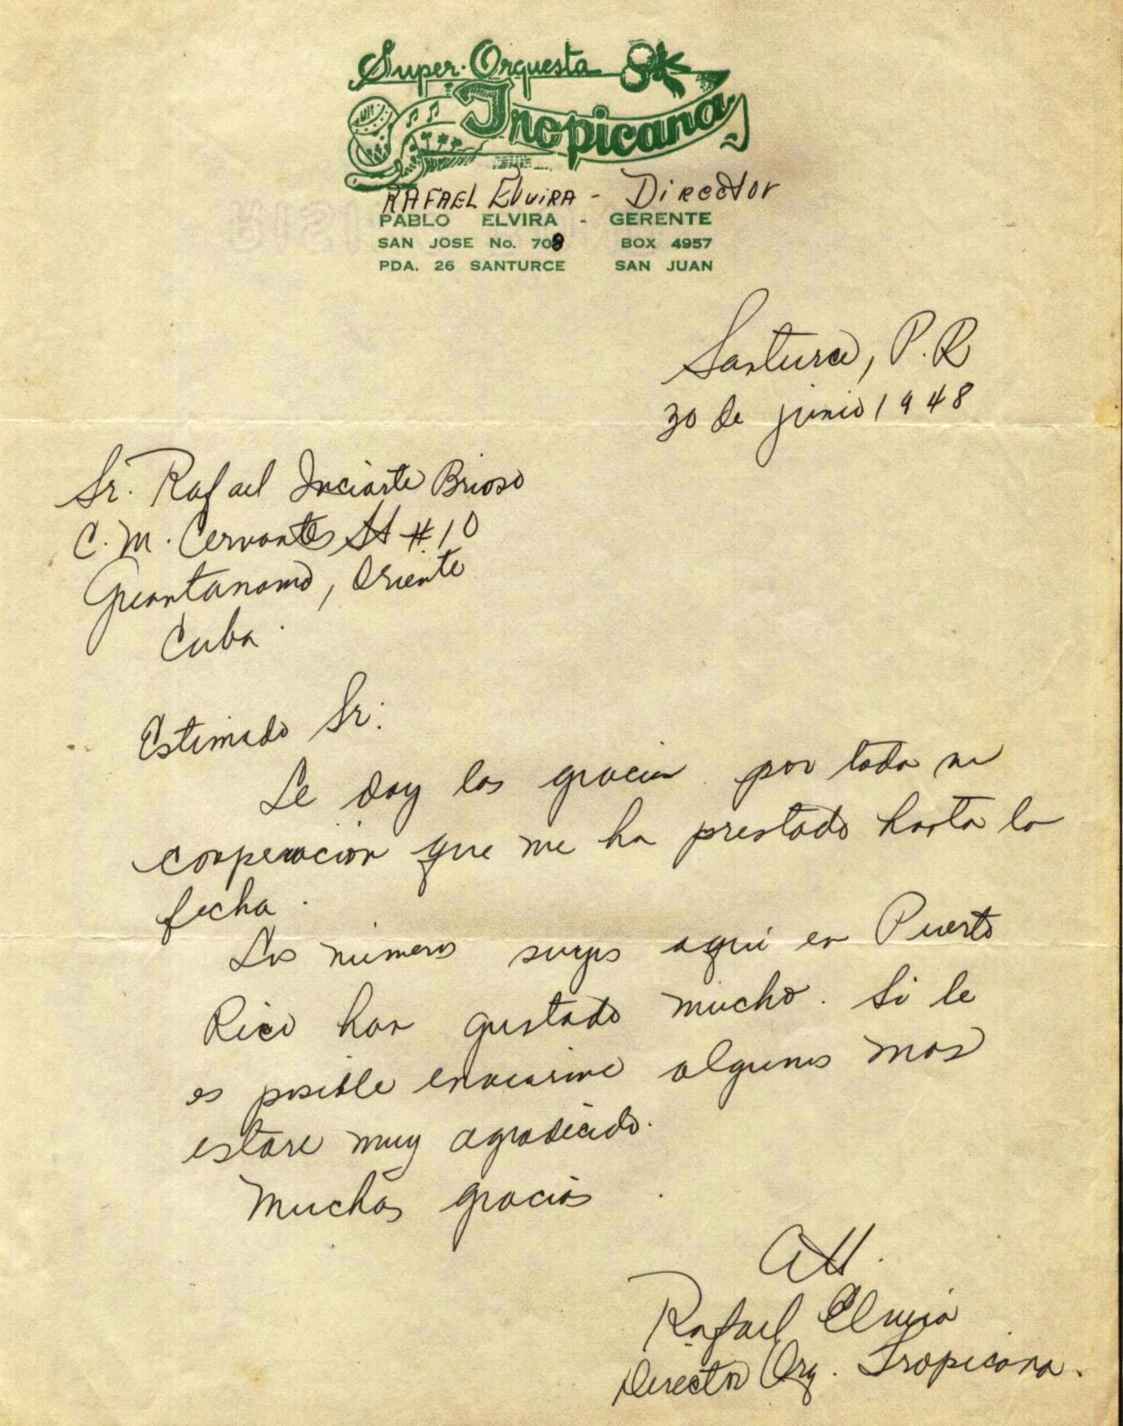 Super-Orquesta
Tropicana
RAFAEL ElviRA - Director
PABLO ELVIRA - GERENTE
SAN JOSE No. 708 BOX 4957
PDA. 26 SANTURCE SAN JUAN
Santurce, P.R
30 de junio 1948
Sr. Rafael Inciarte Brioso
C.M. Cervantes St #10
Guantanamo, Oriente
Cuba.
Estimado Sr:
Le doy las gracias por toda su
cooperación que me ha prestado hasta la
fecha.
Los números suyos aquí en Puerto
Rico han gustado mucho. Si le
es posible enviarme algunos mas
estare muy agradecido.
Muchas gracias
Att.
Rafael Elvira
Director Orq. Tropicana.